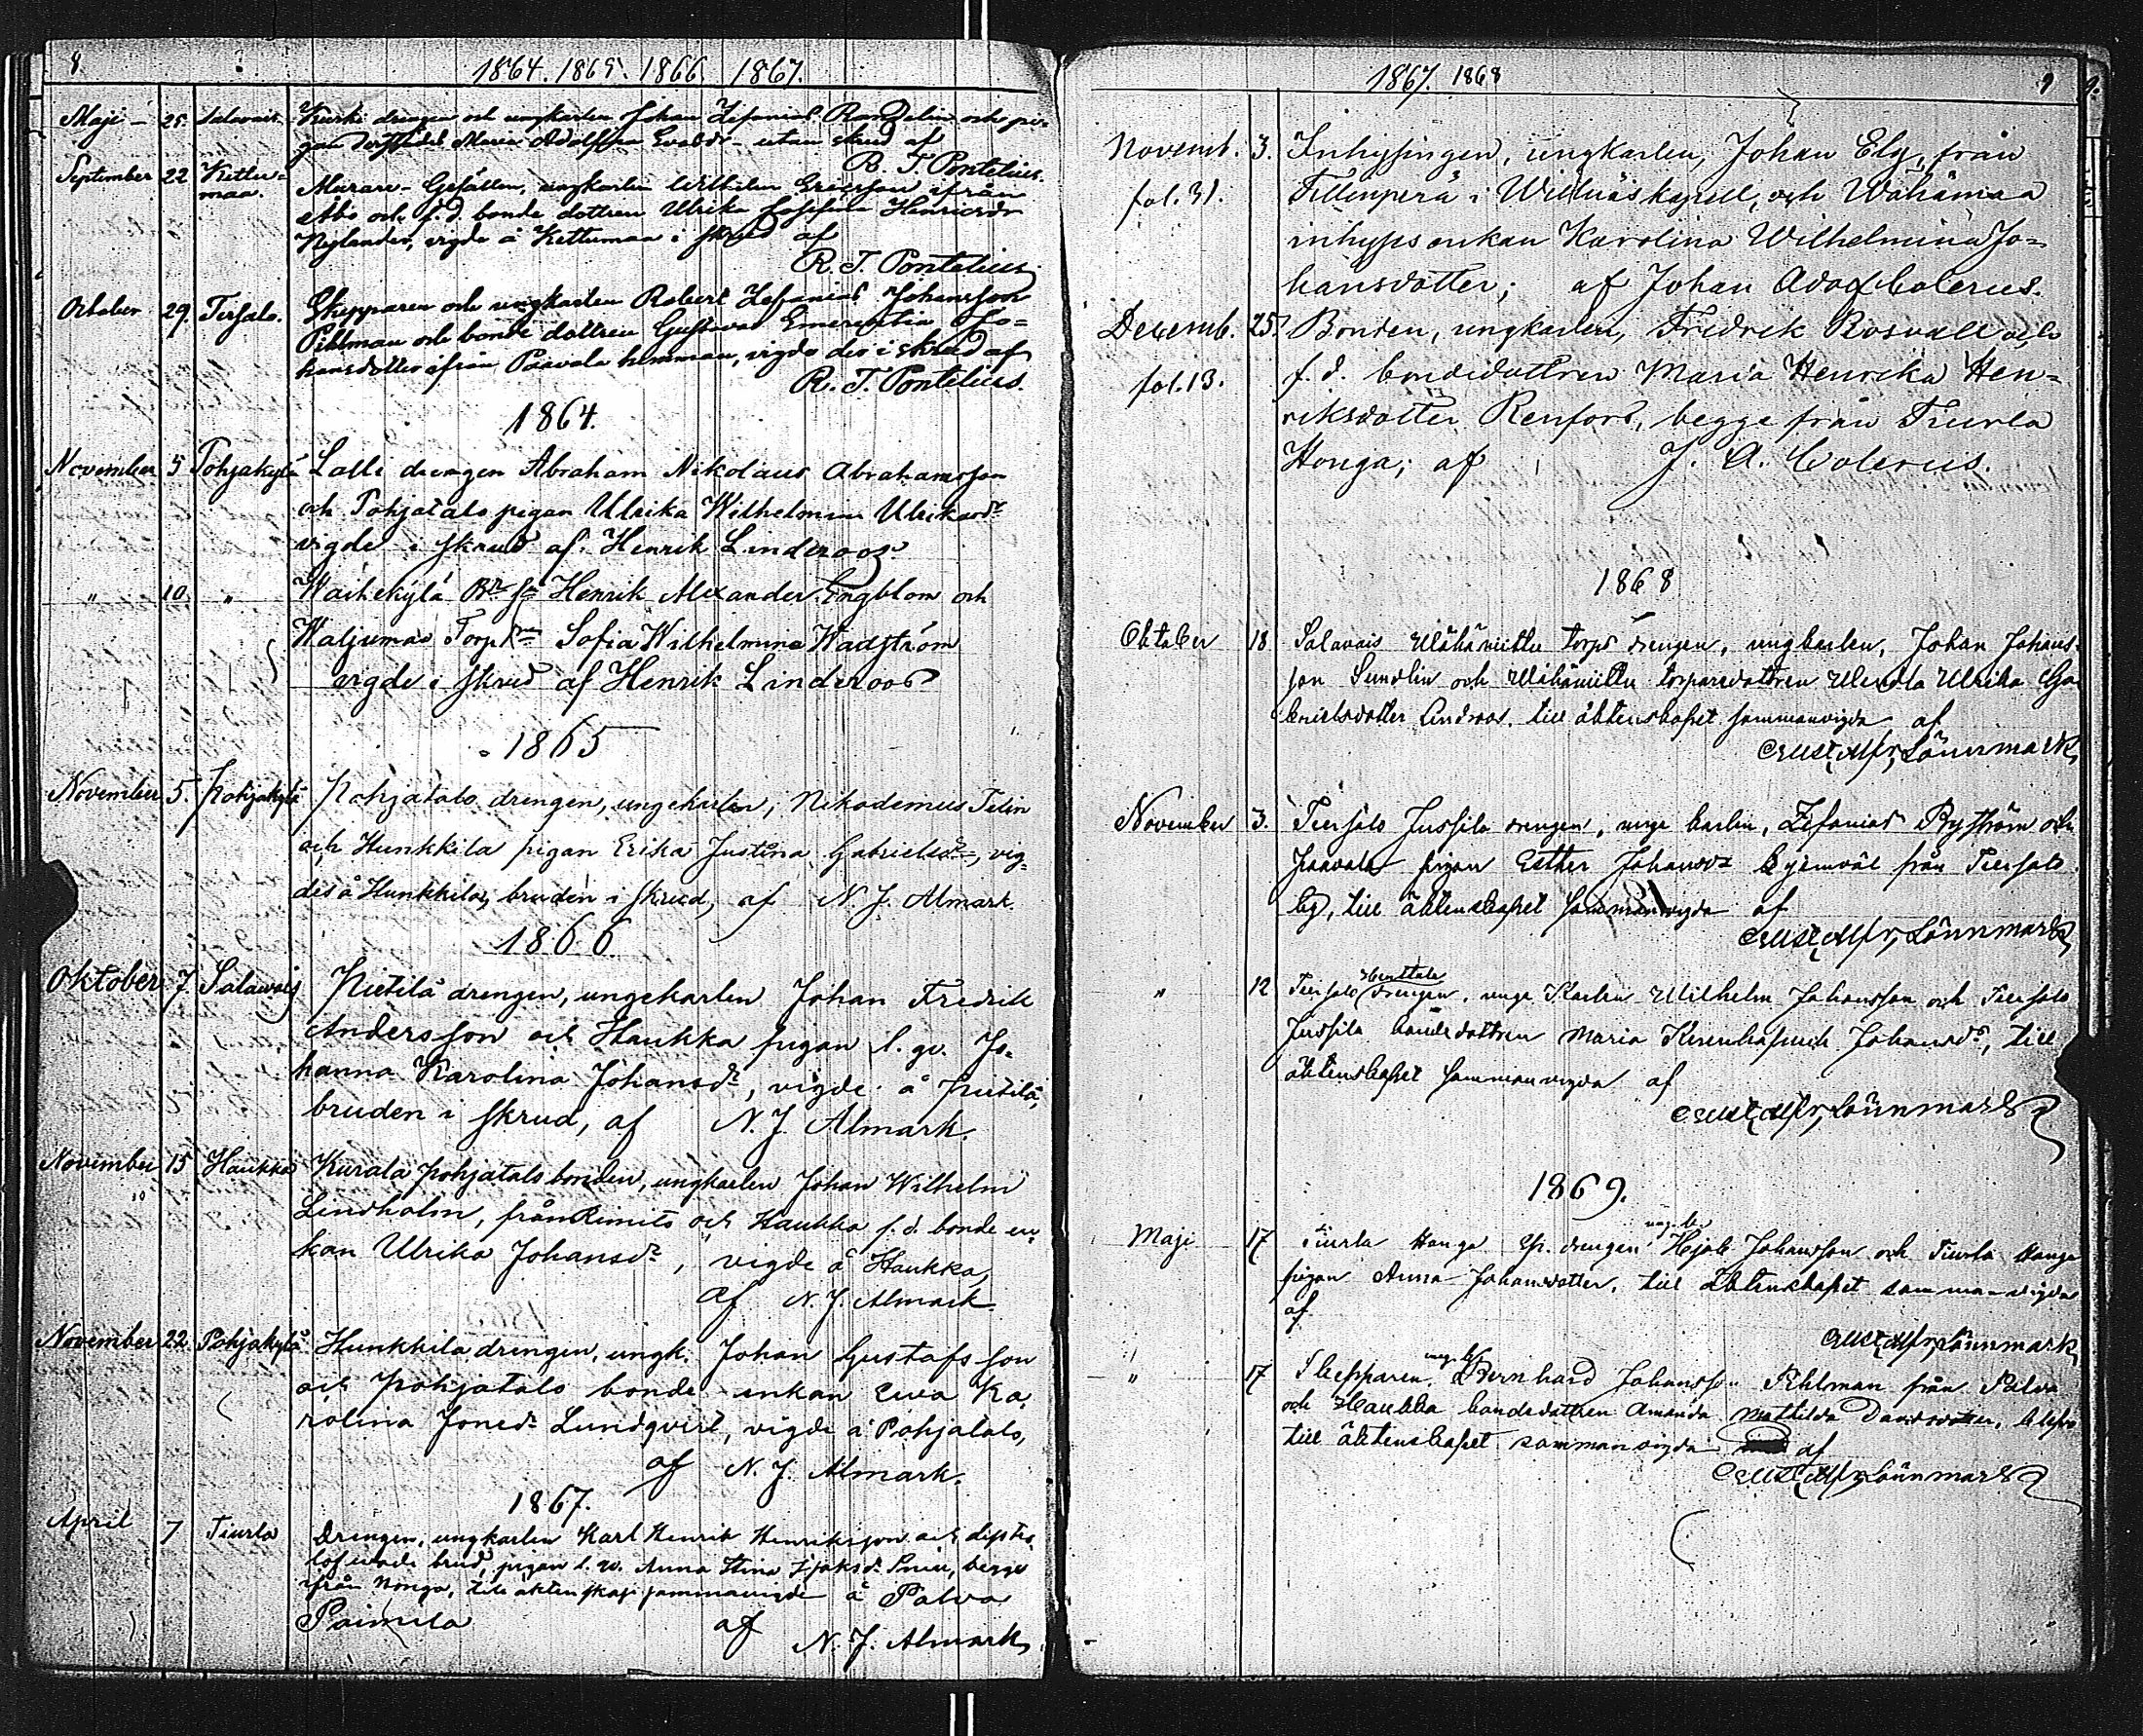 8. 1864. 1865. 1866. 1867.
Maji 25. Salavais. Kurki drengen och ungkarlen Johan Zefanias Randelin och pi-
gan Maria Adolffina utan skrud af
R. T. Pontelius.
September 22 Kettu-
maa. Murare-Gesällen, ungkarlen Wilhelm Ericsson ifrån
Åbo och f. d. bonde dottren Ulrika Josefina Henricsdr
Nylander, vigde å Kettumaa i skrud af
R. T. Pontelius.
October 29. Tersalo. Skepparen och ungkarlen Robert Zefanias Johansson
Pihlman och bonde dottren Gustava Emerentia Jo-
hansdotter ifrån Paavala hemman, vigde der i skrud af
R. T. Pontelius.
1864.
November 5 Pohjakylä Lalli drengen Abraham Nikolaus Abrahamsson
och Pohjatalo pigan Ulrika Wilhelmina Ulriksdr
vigde i skrud af Henrik Linderoos
" 10. " Waihekylä Henrik Alexander Engblom och
Waljumaa Sofia Wilhelmina Wadström
vigde i skrud af Henrik Linderoos
1865
November 5. Pohjakylä Pohjatalo drengen, ungekarlen, Nikodemus Telin
och Hunkkila pigan Erika Justina Gabrielsdr, vig-
des å Hunkkila, bruden i skrud, af N. J. Almark.
1866.
Oktober 7. Salawais Pietilä drengen, ungekarlen Johan Fredrik
Andersson och Haukka pigan l. qv. Jo-
hanna Karolina Johansdr, vigde å Pietilä,
bruden i skrud, af N. J. Almark.
November 15 Haukka Kurala Pohjatalo bonden, ungkarlen Johan Wilhelm
Lindholm, från Rimito och Haukka f. d. bonde en-
kan Ulrika Johansdr, vigde å Haukka,
af N. J. Almark.
November 22. Pohjakylä Hunkkila drengen, ungk. Johan Gustafsson
och Pohjatalo bonde enkan Ewa Ka-
rolina Jonsdr Lundqvist, vigde å Pohjatalo,
af N. J. Almark.
1867.
April 7 Tiurla Drengen, ungkarlen Karl Henrik Henriksson och dess tro-
lofvade brud, pigan l. qv. Anna Stina begge
ifrån Honga, till äktenskap sammanvigde å Palva
Paimila af N. J. Almark
1867. 1868 9
Novemb. 3. Inhysingen, ungkarlen, Johan Elg, från
fol. 31. i Willnäs kapell, och Wähämaa
inhyses enkan Karolina Wilhelmina Jo-
hansdotter; af Johan Adolf Colerus.
Decemb. 25. Bonden, ungkarlen, Fredrik Rosvall och
fol. 13. f. d. bondedottren Maria Henrika Hen-
riksdotter Renfors, begge från Tiurla
Honga; af J. A. Colerus.
1868
Oktober 18 Salavais torps drengen, ungkarlen, Johan Johans-
son Sundlin och torparedottren Ulrika Ga-
brielsdotter Lindroos, till äktenskapet sammanvigda af
Lönnmark
November 3. Tersalo Jussila drengen, unge karlen, Zefanias Byström och
Paavala pigan Esther Johansdr från Tersalo
by, till äktenskapet sammanvigda af
Lönnmark
" 12 Tersalo Hanttala drengen, unge Karlen Wilhelm Johansson och Tersalo
Jussila bondedottren Maria Johansdr, till
äktenskapet sammanvigda af
Lönnmark
1869.
Maji 17 Tiurla Honga drengen ung. k. Johansson och Tiurla Honga
pigan Anna Johansdotter, till äktenskapet sammanvigda
af
Lönnmark
" 17 Skepparen, ung. k. Bernhard Johansson Pihlman från Palva
och Haukka bondedottren Amanda Mathilda Davidsdotter,
till äktenskapet sammanvigda af
Lönnmark